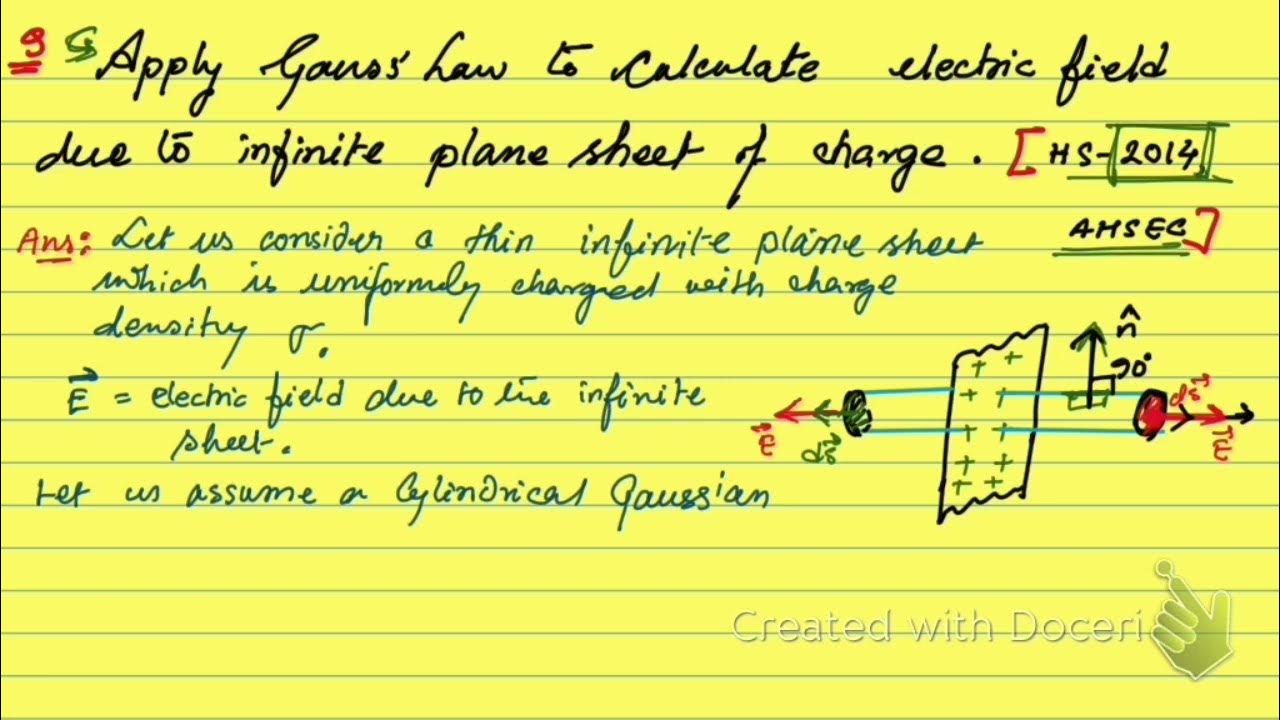 Q ↳ Apply Gauss' Law to Calculate electric field
due to infinite plane sheet of charge. [HS-2014
AHSEC]
Ans: Let us consider a thin infinite plane sheet
which is uniformly charged with charge
density σ.
E⃗ = electric field due to the infinite
sheet.
Let us assume a Cylindrical Gaussian
n̂
90°
ds⃗
E⃗
E⃗
ds⃗
+ +
+ +
+ +
+ +
+ +
Created with Doceri